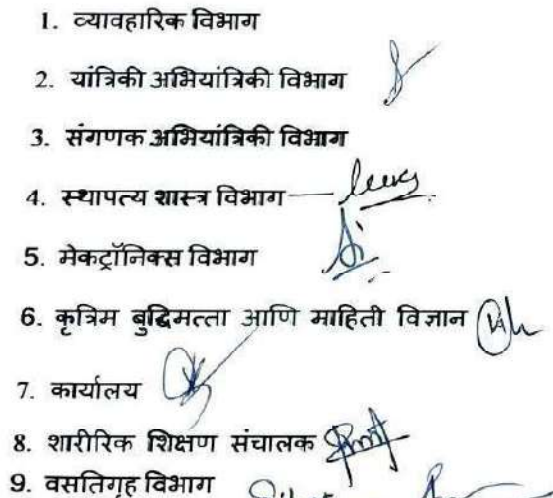 1. व्यावहारिक विभाग
2. यांत्रिकी अभियांत्रिकी विभाग
3. संगणक अभियांत्रिकी विभाग
4. स्थापत्य शास्त्र विभाग
5. मेकट्रॉनिक्स विभाग
6. कृत्रिम बुद्धिमत्ता आणि माहिती विज्ञान
7. कार्यालय
8. शारीरिक शिक्षण संचालक
9. वसतिगृह विभाग